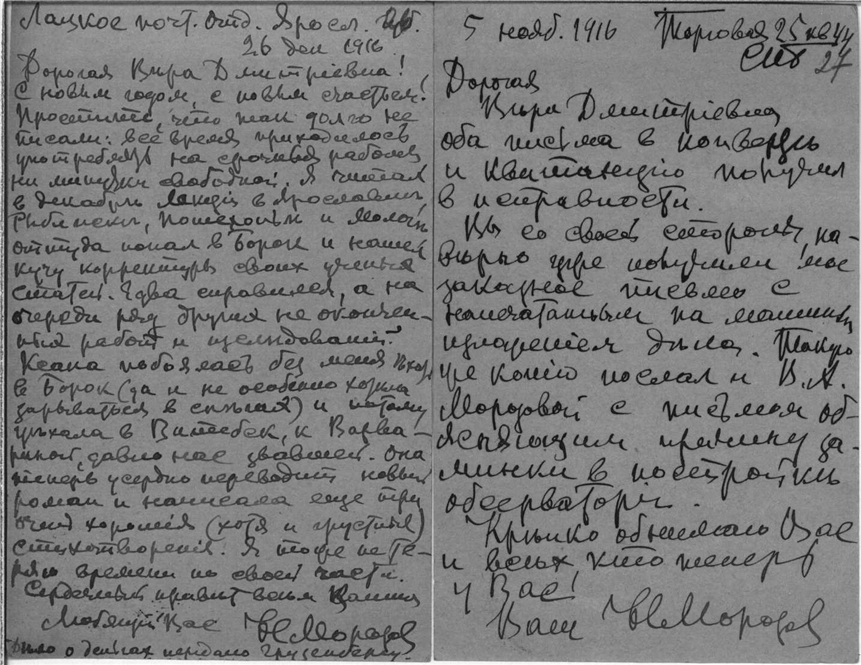 Лацкое почт. отд. Яросл. губ.
26 дек 1916
Дорогая Вѣра Дмитріевна!
С новым годом, с новым счастьем!
Простите, что так долго не
писали: всё время приходилось
употреблять на срочныя работы
ни минутки свободной, я читал
в декабрѣ лекціи в Ярославлѣ,
Рыбинскѣ, Пошехоньи и Мологѣ,
оттуда попал в Борок и нашел
кучу корректуры своих ученых
статей. Едва справился, а на
очереди ряд других не окончен-
ных работ и изслѣдованій.
Ксана побоялась без меня ѣхать
в Борок (да и не особенно хотѣла
зарываться в снѣгах) и потому
уѣхала в Витебск, к
давно нас звавшей. Она
теперь усердно переводит новый
роман и написала еще три
очень хорошія (хотя и грустныя)
стихотворенія. Я тоже не те-
ряю времени по своей части.
Сердечный привѣт всѣм Вашим
Любящій Вас Н Морозов
Дѣло о деньгах передано Грузенбергу.
5 нояб. 1916 Торговая 25 кв 44
СПб 27
Дорогая
Вѣра Дмитріевна
оба письма в конвертѣ
и квитанцію получил
в исправности.
Вы со своей стороны, на-
вѣрно уже получили мое
заказное письмо с
напечатанным на машинкѣ
изложеніем дѣла. Такую
же копію послал и В. А.
Морозовой с письмом об-
ясняющим причину за-
минки в постройкѣ
обсерваторіи.
Крѣпко обнимаю Вас
и всѣх кто теперь
у Вас!
Ваш Н Морозов